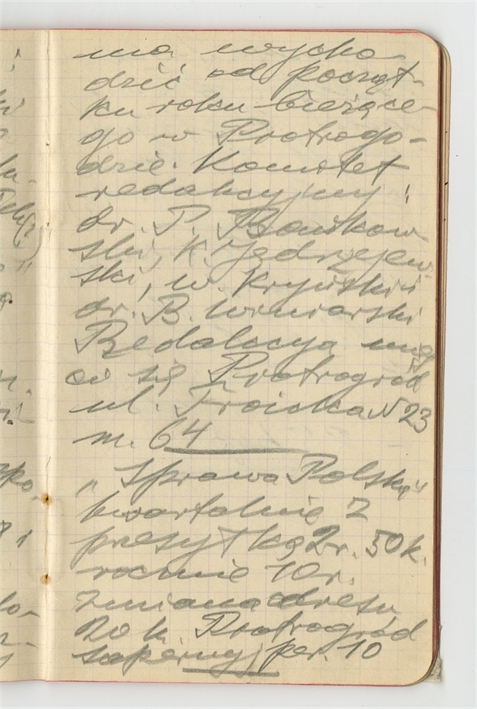 ma wycho-
dzić od począt-
ku roku bieżące-
go w Piotrogo-
dzie. Komitet
redakcyjny:
dr. P. Bańkow
ski, K. Jędrzejew
ski, w. Kryński i
dr. B. Winiarski
Redakcya mieś
ci się Piotrogród
ul. Troicka N 23
m. 64
„Sprawa Polska"
kwartalnie z
przesyłką 2 r. 50 k.
rocznie 10 r.
zmiana adresu
20 k. Piotrogród
saperny per. 10